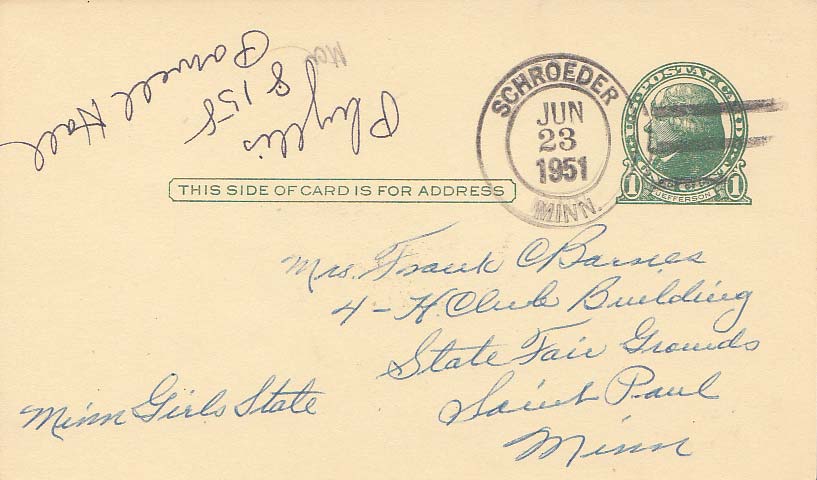 Phyllis
8158
Powell Hall
SCHROEDER
JUN
23
1951
MINN.
U.S. POSTAL CARD
1 1
JEFFERSON
THIS SIDE OF CARD IS FOR ADDRESS
Mrs. Frank C Barnes
4-H Club Building
State Fair Grounds
Saint Paul
Minn
Minn Girls State